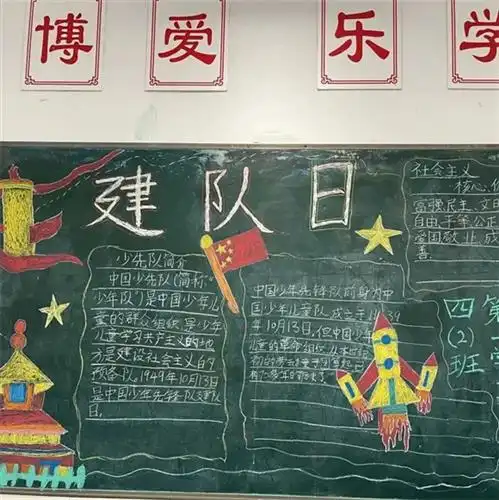 博 爱 乐 学
建队日
少先队简介
中国少先队(简称:
少年队)是中国少年儿
童的群众组织是少年
儿童学习共产主义的地
方是建设社会主义的
预备队。1949年10月13日
是中国少年先锋队建队
日。
中国少年先锋队前身为中
国少年儿童队成立于1949
年10月13日,但中国少年
儿童的革命组织
社会主义
核心
富强民主文明
自由平等公正
爱国敬业
善
四
(2)
班
第